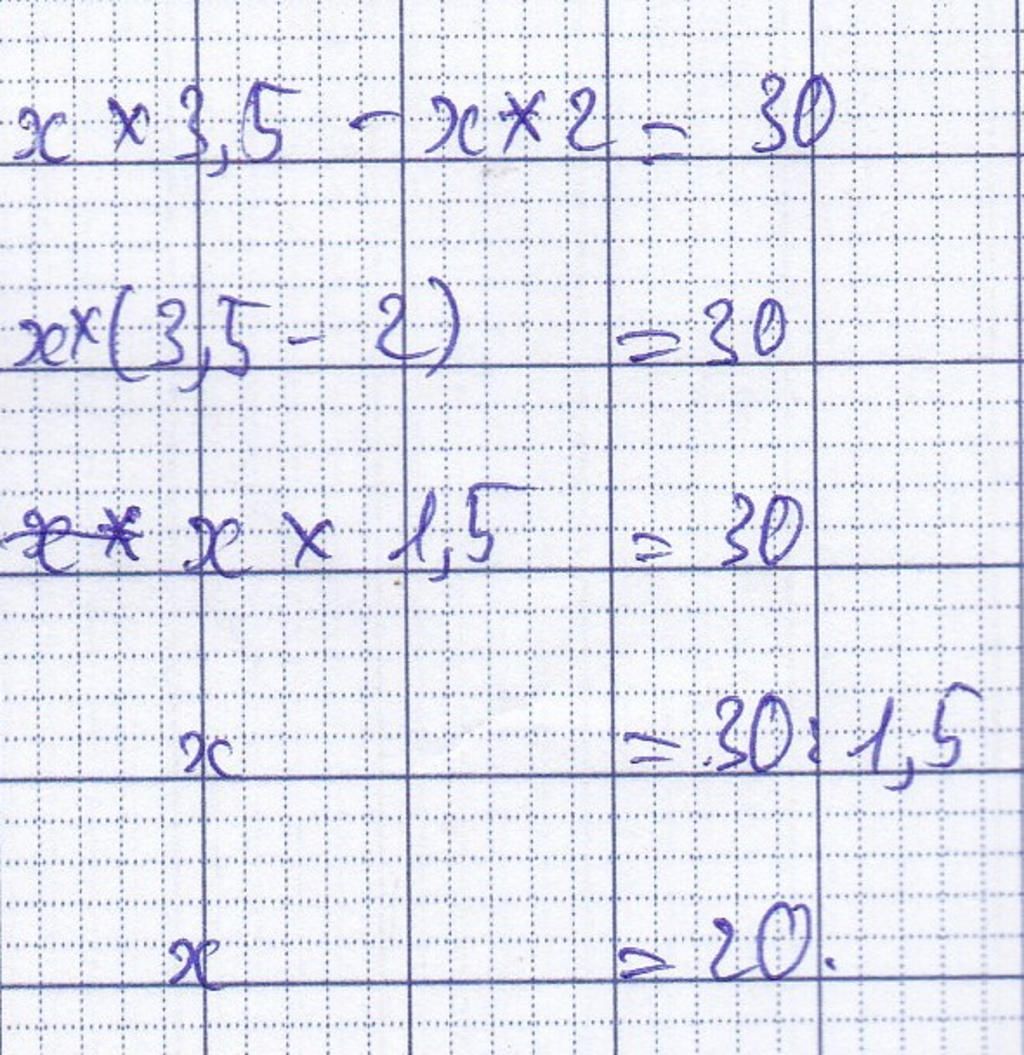 x × 3,5 - x × 2 = 30
x × (3,5 - 2) = 30
x × 1,5 = 30
x = 30 : 1,5
x = 20.